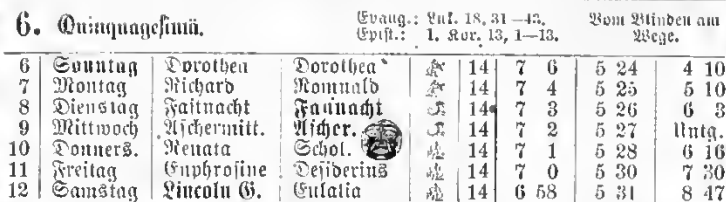 6. Quinquagesimä. Evang.: Luk. 18, 31–43. Vom Blinden am
Epist.: 1. Kor. 13, 1–13. Wege.
6 Sonntag Dorothea Dorothea 14 7 6 5 24 4 10
7 Montag Richard Romuald 14 7 4 5 25 5 10
8 Dienstag Fastnacht Fastnacht 14 7 3 5 26 6 3
9 Mittwoch Aschermitt. Ascher. 14 7 2 5 27 Untg.
10 Donners. Renata Schol. 14 7 1 5 28 6 16
11 Freitag Euphrosine Desiderius 14 7 0 5 30 7 30
12 Samstag Lincoln G. Eulalia 14 6 58 5 31 8 47